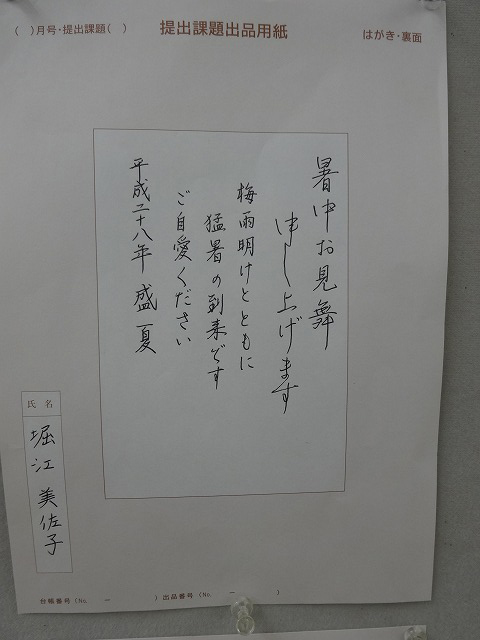 ( )月号・提出課題( )
提出課題出品用紙
はがき・裏面
暑中お見舞
申し上げます
梅雨明けとともに
猛暑の到来です
ご自愛ください
平成二十八年 盛夏
氏名
堀江 美佐子
台帳番号(No. − )出品番号(No. − )